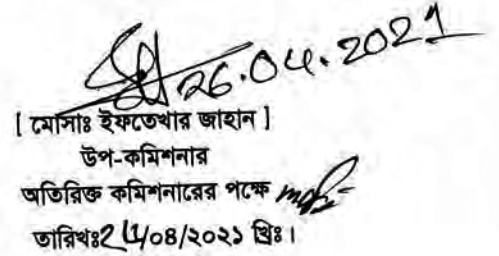 26.04.2021
[ মোসাঃ ইফতেখার জাহান ]
উপ-কমিশনার
অতিরিক্ত কমিশনারের পক্ষে
তারিখঃ /০৪/২০২১ খ্রিঃ।